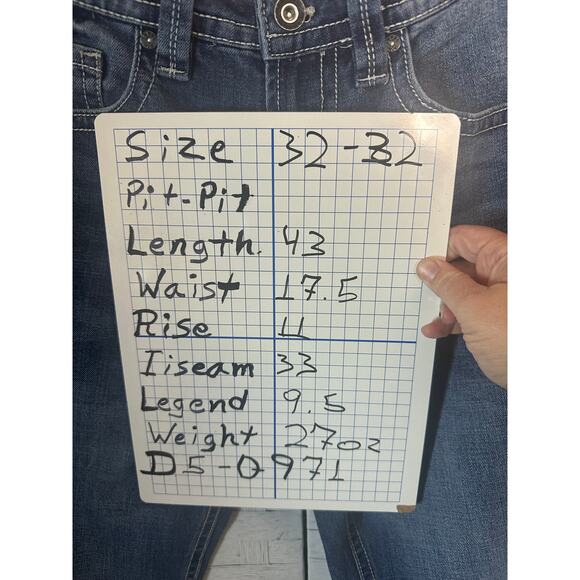 Size 32-32
Pit-Pit
Length. 43
Waist 17.5
Rise 11
Iiseam 33
Legend 9.5
Weight 27oz
D5-0971